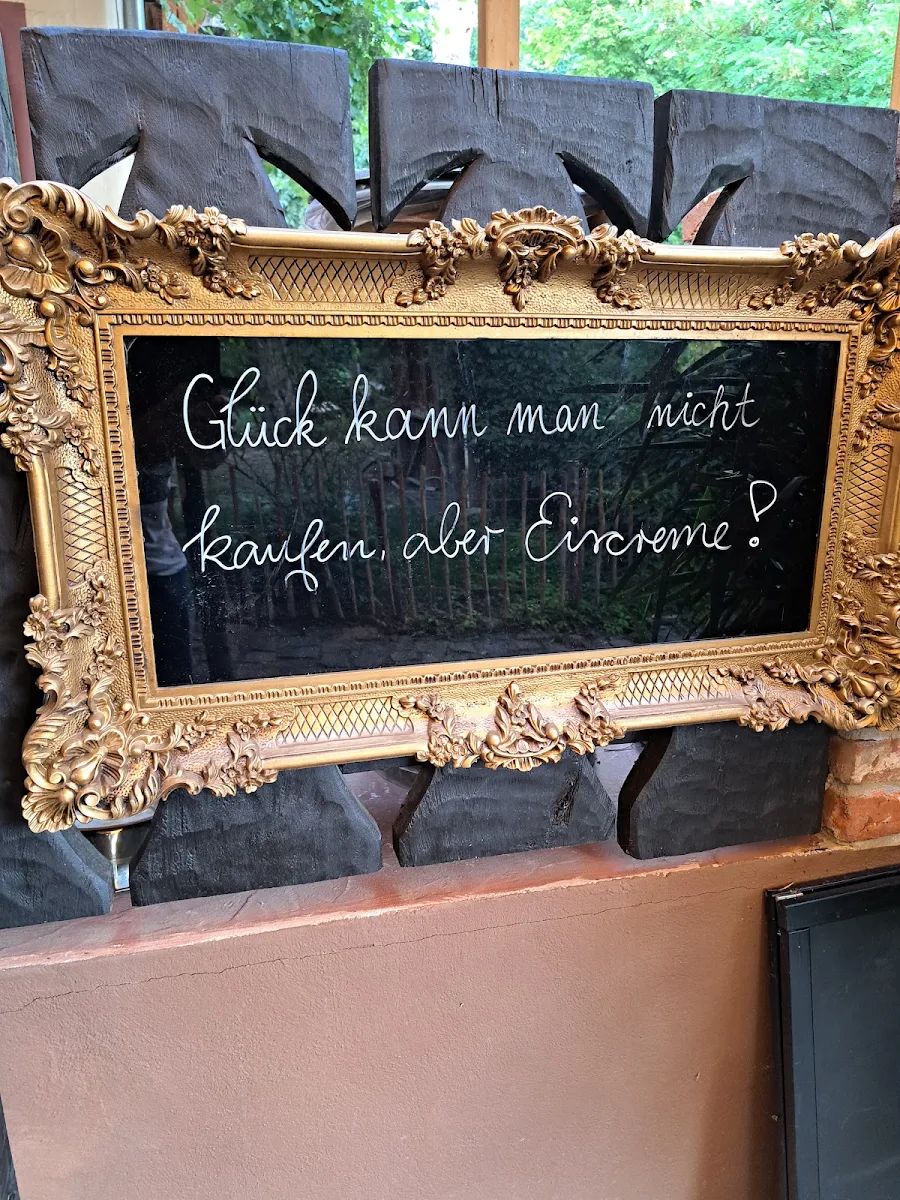 Glück kann man nicht
kaufen, aber Eiscreme!